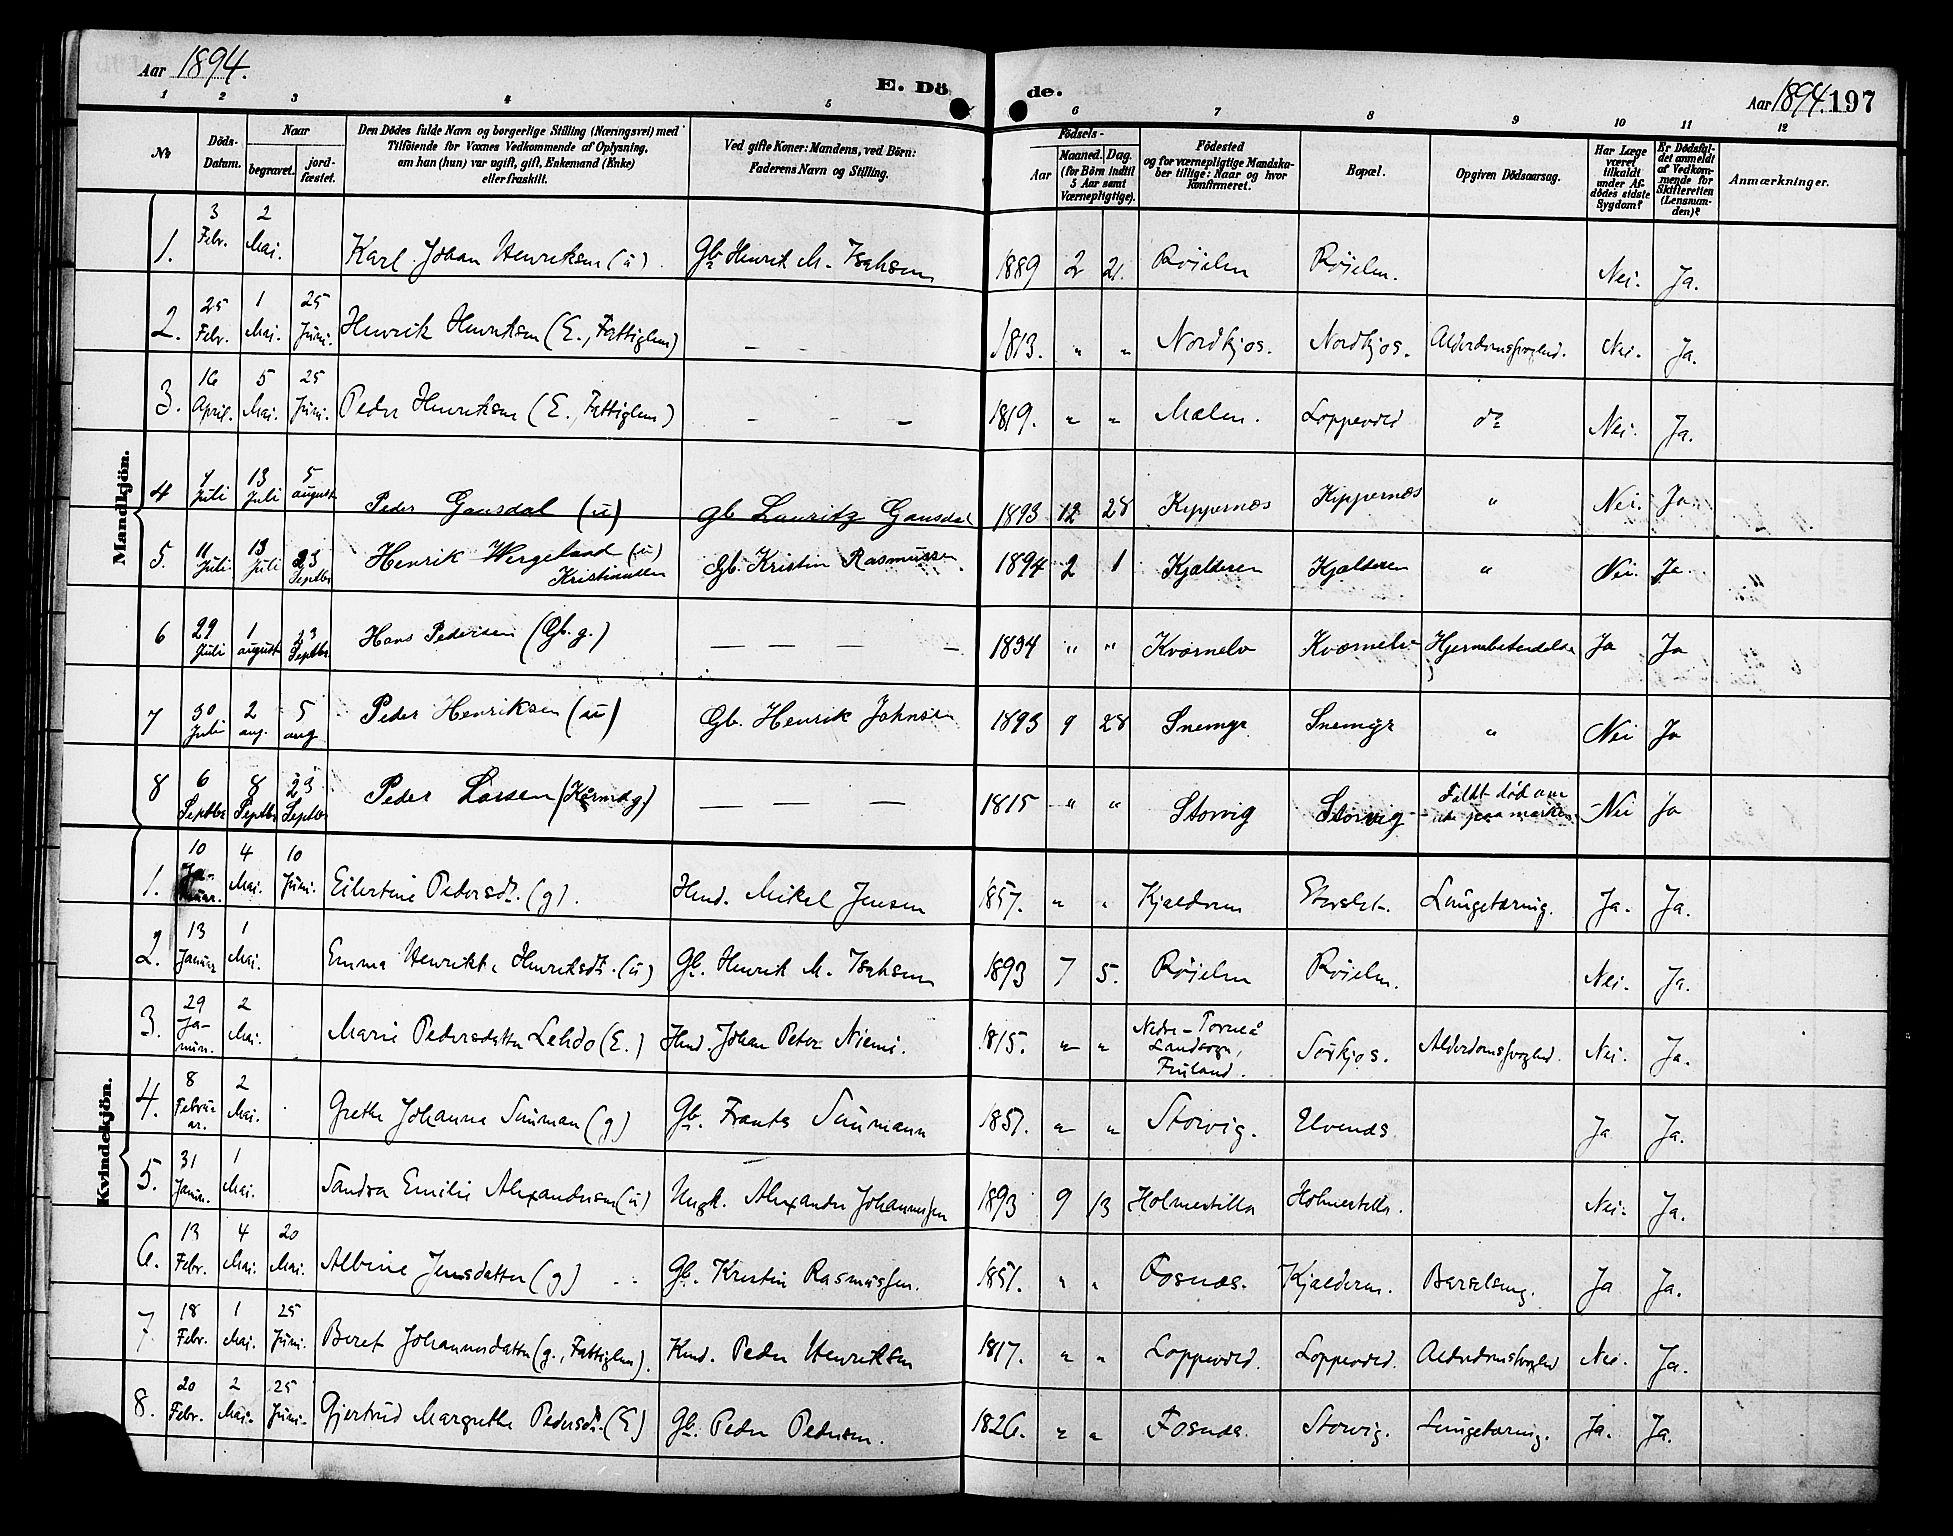 Aar 1894.
E. Dö de.
Aar 1894. 197
1 2 3 4 5 6 7 8 9 10 11 12
No
Döds-Datum.
Naar
begravet.
jord-fæstet.
Den Dödes fulde Navn og borgerlige Stilling (Næringsvei) med
Tilföiende for Voxnes Vedkommende af Oplysning,
om han (hun) var ugift, gift, Enkemand (Enke)
eller fraskilt.
Ved gifte Koner: Mandens, ved Börn:
Faderens Navn og Stilling.
Födsels-
Aar
Maaned. Dag.
(for Börn indtil
5 Aar samt
Værnepligtige).
Födested
og for værnepligtige Mandska-
ber tillige: Naar og hvor
konfirmeret.
Bopæl.
Opgiven Dödsaarsag.
Har Læge
været
tilkaldt
under Af-
dödes sidste
Sygdom?
Er Dödsfal-
det anmeldt
af Vedkom-
mende for
Skifteretten
(Lensman-
den)?
Anmærkninger.
Mandkjön.
1. 3 Febr. 2 Mai. Karl Johan Henriksen (u) Gb. Henrik M. Isaksen 1889 2 21. Röielen Röielen. Nei. Ja.
2. 25 Febr. 1 Mai. 25 Juni. Henrik Henriksen (E., Fattiglem) – – 1813. " " Nordkjos. Nordkjos. Alderdomssvaghed. Nei. Ja.
3. 16 April. 5 Mai. 25 Juni. Peder Henriksen (E., Fattiglem) – – – 1819. " " Mælen. Loppevold do Nei. Ja.
4 Juli 13 Juli 5 august Peder Gausdal (u) Gb Lauritz Gausdal 1893 12 28 Kippernæs Kippernæs " Nei. Ja.
5. 11 Juli 13 Juli 23 Septbr Henrik Wergeland (u) Kristinusen Gb. Kristin Rasmussen 1894 2 1 Kjælderen Kjælderen " Nei. Ja.
6 29 Juli 1 august 23 Septbr. Hans Pedersen (Gb. g.) – – – – 1894 " " Kvænnelv Kvænnelv Hjernebetændelse Ja Ja
7 30 Juli 2 aug. 5 aug Peder Henriksen (u) Gb. Henrik Johnsen 1893 9 28 Snemyr Snemyr " Nei Ja
8 6 Septbr 8 Septbr 23 Septbr Peder Larsen – – – 1815 " " Storvig Storvig Faldt död om ude paa marken. Nei Ja
Kvindekjön.
1. 10 Januar. 4 Mai. 10 Juni. Eilertine Pedersdr. (g). Hmd. Mikel Jensen 1857. " " Kjælderen Storslet. Lungetæring. Ja. Ja.
2. 13 Januar 1 Mai. Emma Henrikke Henriksdr. (u) Gb. Henrik M. Isaksen 1893 7 5. Röielen Röielen. Nei. Ja.
3. 29 Januar. 2 Mai. Marie Pedersdatter Lehdo (E.) Hmd. Johan Peter Niemi. 1815. " " Nedre-Torneå Landsogn, Finland. Sörkjos. Alderdomssvaghed. Nei. Ja.
4. 8 Februar. 2 Mai. Grethe Johanna Saumann (g) Gb. Frants Saumann 1851. " " Storvig. Elvenæs. Ja Ja.
5. 31 Januar. 1 Mai. Sandra Emilie Alexandersen (u) Ungk. Alexander Johannessen 1893 9 13 Holmestilla Holmestilla. Nei. Ja.
6. 13 Febr. 4 Mai. 20 Mai. Albine Jensdatter (g) Gb. Kristin Rasmussen. 1851. " " Fosnæs. Kjælderen. Barselseng. Ja Ja.
7. 18 Febr. 1 Mai. 25 Juni. Beret Johannesdatter (g., Fattiglem). Kmd. Peder Henriksen 1817. " " Loppevold. Loppevold. Alderdomssvaghed Nei. Ja.
8. 20 Febr. 2 Mai. 25 Juni. Gjertrud Margrethe Pedersdr. (E) Gb. Peder Pedersen. 1826. " " Fosnæs. Storvig. Lungetæring. Ja. Ja.